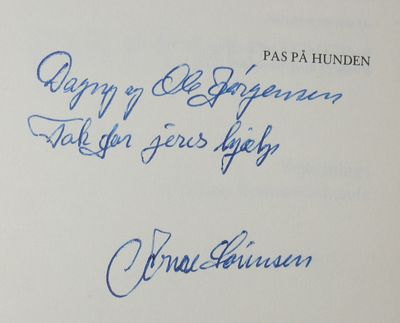 PAS PÅ HUNDEN
Dagny og Ole Jørgensen
Tak for jeres hjælp
Arne Sørensen